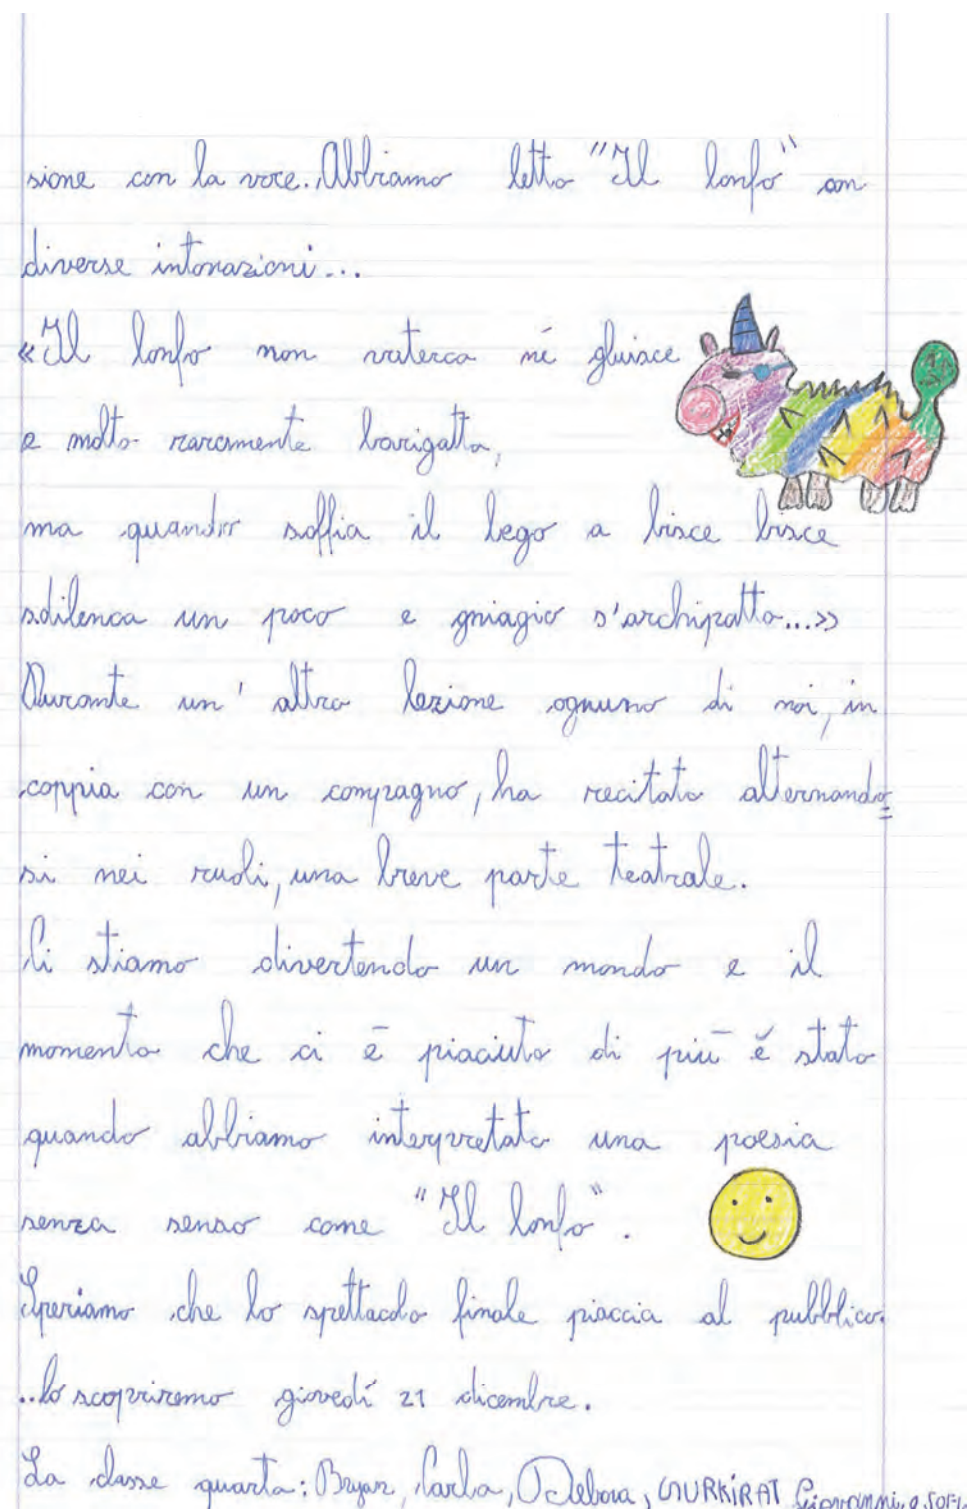 sione con la voce. Abbiamo letto "Il lonfo" con
diverse intonazioni...
«Il lonfo non vaterca né gluisce
e molto raramente barigatta,
ma quando soffia il bego a bisce bisce
sdilenca un poco e gniagio s'archipatta...»
Durante un' altra lezione ognuno di noi, in
coppia con un compagno, ha recitato alternando=
si nei ruoli, una breve parte teatrale.
Ci stiamo divertendo un mondo e il
momento che ci è piaciuto di più è stato
quando abbiamo interpretato una poesia
senza senso come "Il lonfo".
Speriamo che lo spettacolo finale piaccia al pubblico.
..lo scopriremo giovedí 21 dicembre.
La classe quarta: Bryan, Carla, Debora, GURKÍRAT Giovanni, e